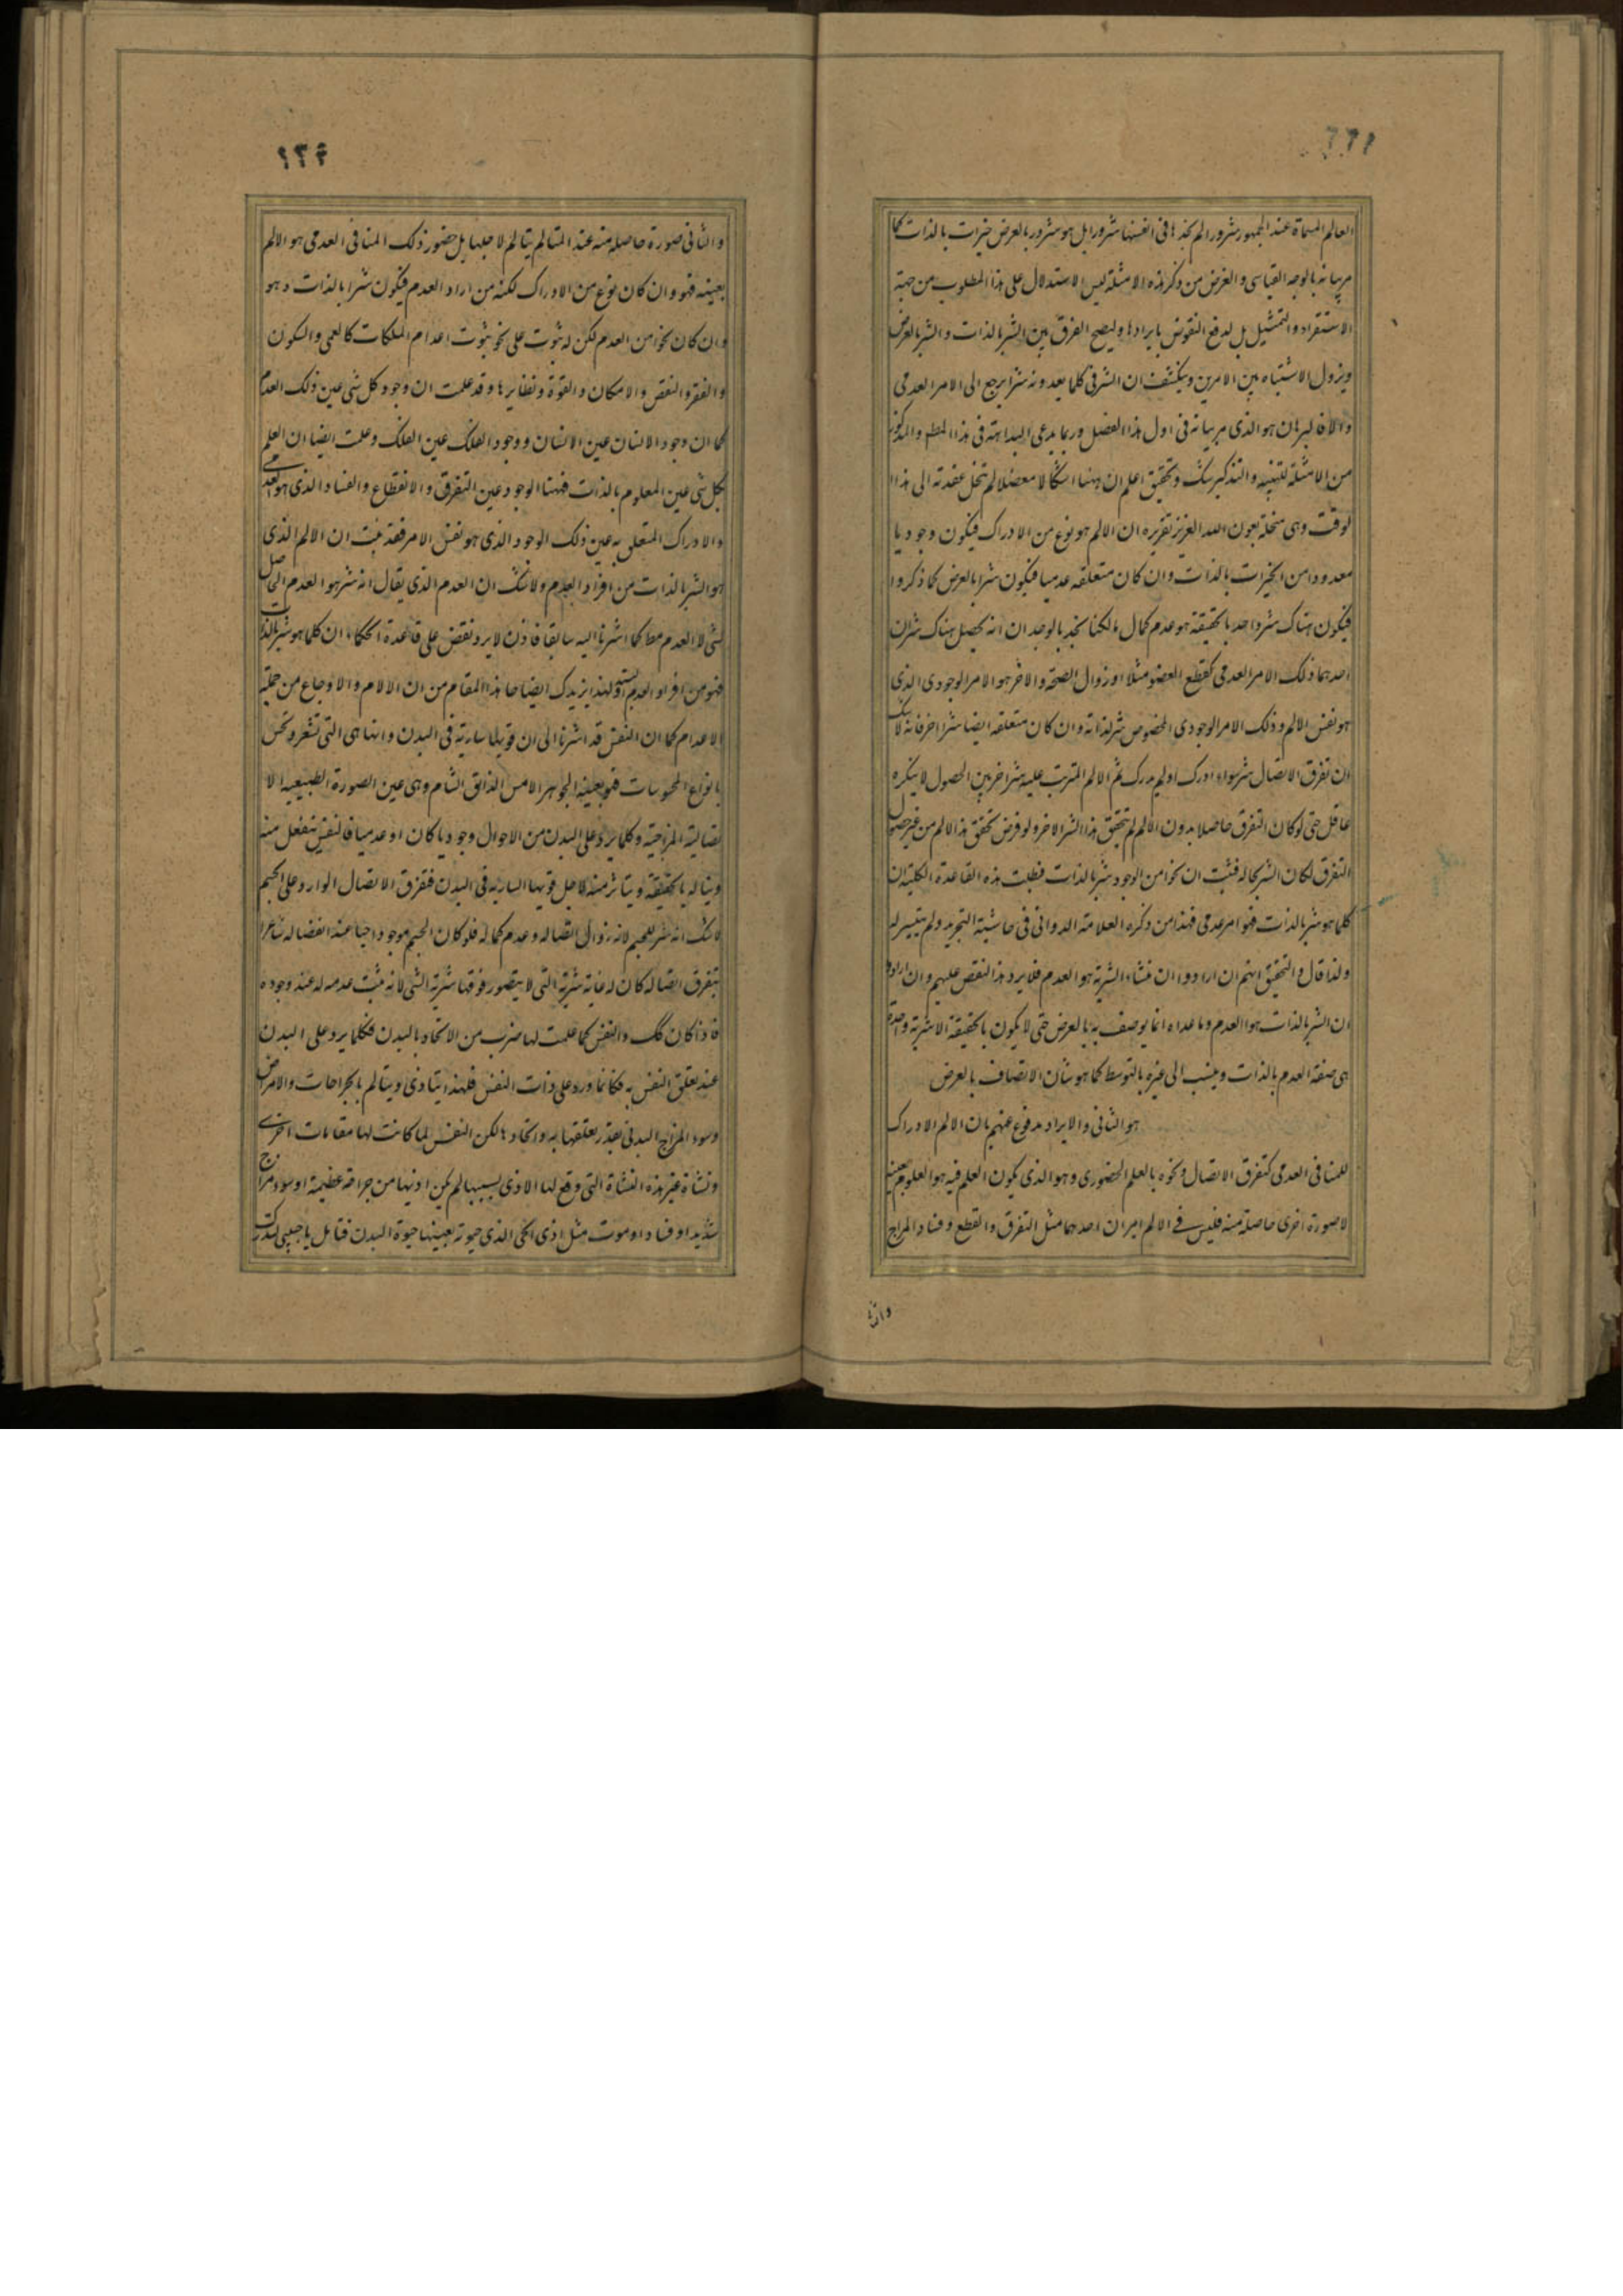 ٢٢١
العالم المسماة عند الجمهور شرورا لم نجدها فى انفسها شرورا بل هو شرور بالعرض خيرات بالذات كما
مر بيانه بالوجه القياسى و الغرض من ذكر هذه الامثلة ليس الاستدلال على هذا المطلوب من جهة
الاستقراء و التمثيل بل لدفع النقوض بايرادها و ليصح الفرق بين الشر بالذات و الشر بالعرض
و يزول الاشتباه بين الامرين و ينكشف ان الشر فى كلما يعدونه شرا يرجع الى الامر العدمى
و الا فالبرهان هو الذى مر بيانه فى اول هذا الفصل و ربما يدعى البداهة فى هذا المط و المذكور
من الامثلة للتنبيه و التذكير شك و تحقيق اعلم ان ههنا اشكالا معضلا لم تنحل عقدته الى هذا ا
لوقت و هى منحلة بعون الله العزيز تقريره ان الالم هو نوع من الادراك فيكون وجوديا
معدودا من الخيرات بالذات و ان كان متعلقه عدميا فيكون شرا بالعرض كما ذكروا
فيكون هناك شر واحد بالحقيقة هو عدم كمال ما لكنا نجد بالوجدان انه يحصل هناك شران
احدهما ذلك الامر العدمى كقطع العضو مثلا او زوال الصحة و الاخر هو الامر الوجودى الذى
هو نفس الالم و ذلك الامر الوجودى المخصوص شر لذاته و ان كان متعلقه ايضا شرا اخر فانه لا شك
ان تفرق الاتصال شر سواء ادرك او لم يدرك ثم الالم المترتب عليه شر اخر بين الحصول لا ينكره
عاقل حتى لو كان التفرق حاصلا بدون الالم لم يتحقق هذا الشر الاخر و لو فرض تحقق هذا الالم من غير حصول
التفرق لكان الشر بحاله فثبت ان نحوا من الوجود شر بالذات فبطلت هذه القاعدة الكلية ان
كلما هو شر بالذات فهو امر عدمى فهذا من ذكره العلامة الدوانى فى حاشية التجريد و لم يتيسر له
و لذا قال و التحقيق انهم ان ارادوا ان منشاء الشرية هو العدم فلا يرد هذا النقض عليهم و ان ارادوا
ان الشر بالذات هو العدم و ما عداه انما يوصف به بالعرض حتى لا يكون بالحقيقة الا شرية واحدة
هى صفة العدم بالذات و ينسب الى غيره بالتوسط كما هو شان الاتصاف بالعرض
هو الثانى و الايراد مدفوع عنهم بان الالم الادراك
للمنافى العدمى كتفرق الاتصال و نحوه بالعلم الحضورى و هو الذى يكون العلم فيه هو المعلوم بعينه
لا صورة اخرى حاصلة منه فليس فى الالم امران احدهما مثل التفرق و القطع و فساد المزاج
والثا
٢٢٢
و الثانى صورة حاصله منه عند المتالم يتالم لاجلها بل حضور ذلك المنافى العدمى هو الالم
بعينه فهو و ان كان نوع من الادراك لكنه من افراد العدم فيكون شرا بالذات و هو
و ان كان نحوا من العدم لكن له ثبوت على نحو ثبوت اعدام الملكات كالعمى و السكون
و الفقر و النقص و الامكان و القوة و نظايرها و قد علمت ان وجود كل شى عين ذلك العدم
كما ان وجود الانسان عين الانسان و وجود الفلك عين الفلك و علمت ايضا ان العلم
بكل شى عين المعلوم بالذات فههنا الوجود عين التفرق و الانقطاع و الفساد الذى هو العدمى
و الادراك المتعلق به عين ذلك الوجود الذى هو نفس الامر فقد ثبت ان الالم الذى
هو الشر بالذات من افراد العدم و لا شك ان العدم الذى يقال انه شر هو العدم الحاصل
لشى لا العدم مط كما اشرنا اليه سابقا فاذن لا يرد نقض على قاعدة الحكماء ان كلما هو شر بالذات
فهو من افراد العدم البتة و لهذا يزيدك ايضاحا هذا المقام من ان الالام و الاوجاع من جملة
الاعدام كما ان النفس قد اشرنا الى ان قويها سارية فى البدن و انها هى التى تشعر و تحس
بانواع المحسوسات فهو بعينه الجوهر اللامس الذائق الشام و هى عين الصورة الطبيعيه الا
تصالية المزاجية و كلما يرد على البدن من الاحوال وجوديا كان او عدميا فالنفس تنفعل منه
و يناله بالحقيقة و يتاثر منه لاجل قويها السارية فى البدن فتفرق الاتصال الوارد على الجسم
لا شك انه شر للجسم لانه زوال اتصاله و عدم كماله فلو كان الجسم موجودا حيا عند انفصاله شاعرا
بتفرق اتصاله كان له غاية شرية التى لا يتصور فوقها شرية الشى لانه ثبت عدمه له عند وجوده
فاذا كان كك و النفس كما علمت لها ضرب من الاتحاد بالبدن فكلما يرد على البدن
عند تعلق النفس به فكانما ورد على ذات النفس فلهذا يتاذى و يتالم بالجراحات و الامراض
و سوء المزاج البدنى بقدر تعلقها به و اتحادها لكن النفس لما كانت لها مقامات اخرى
و نشاة غير هذه النشاة التى وقع لها الاذى بسببها لم يكن اذيها من جراحة عظيمة او سوء مزاج
شديد او فساد او موت مثل اذى الحى الذى حيوته بعينها حيوة البدن فتامل يا حبيبى لتدرك